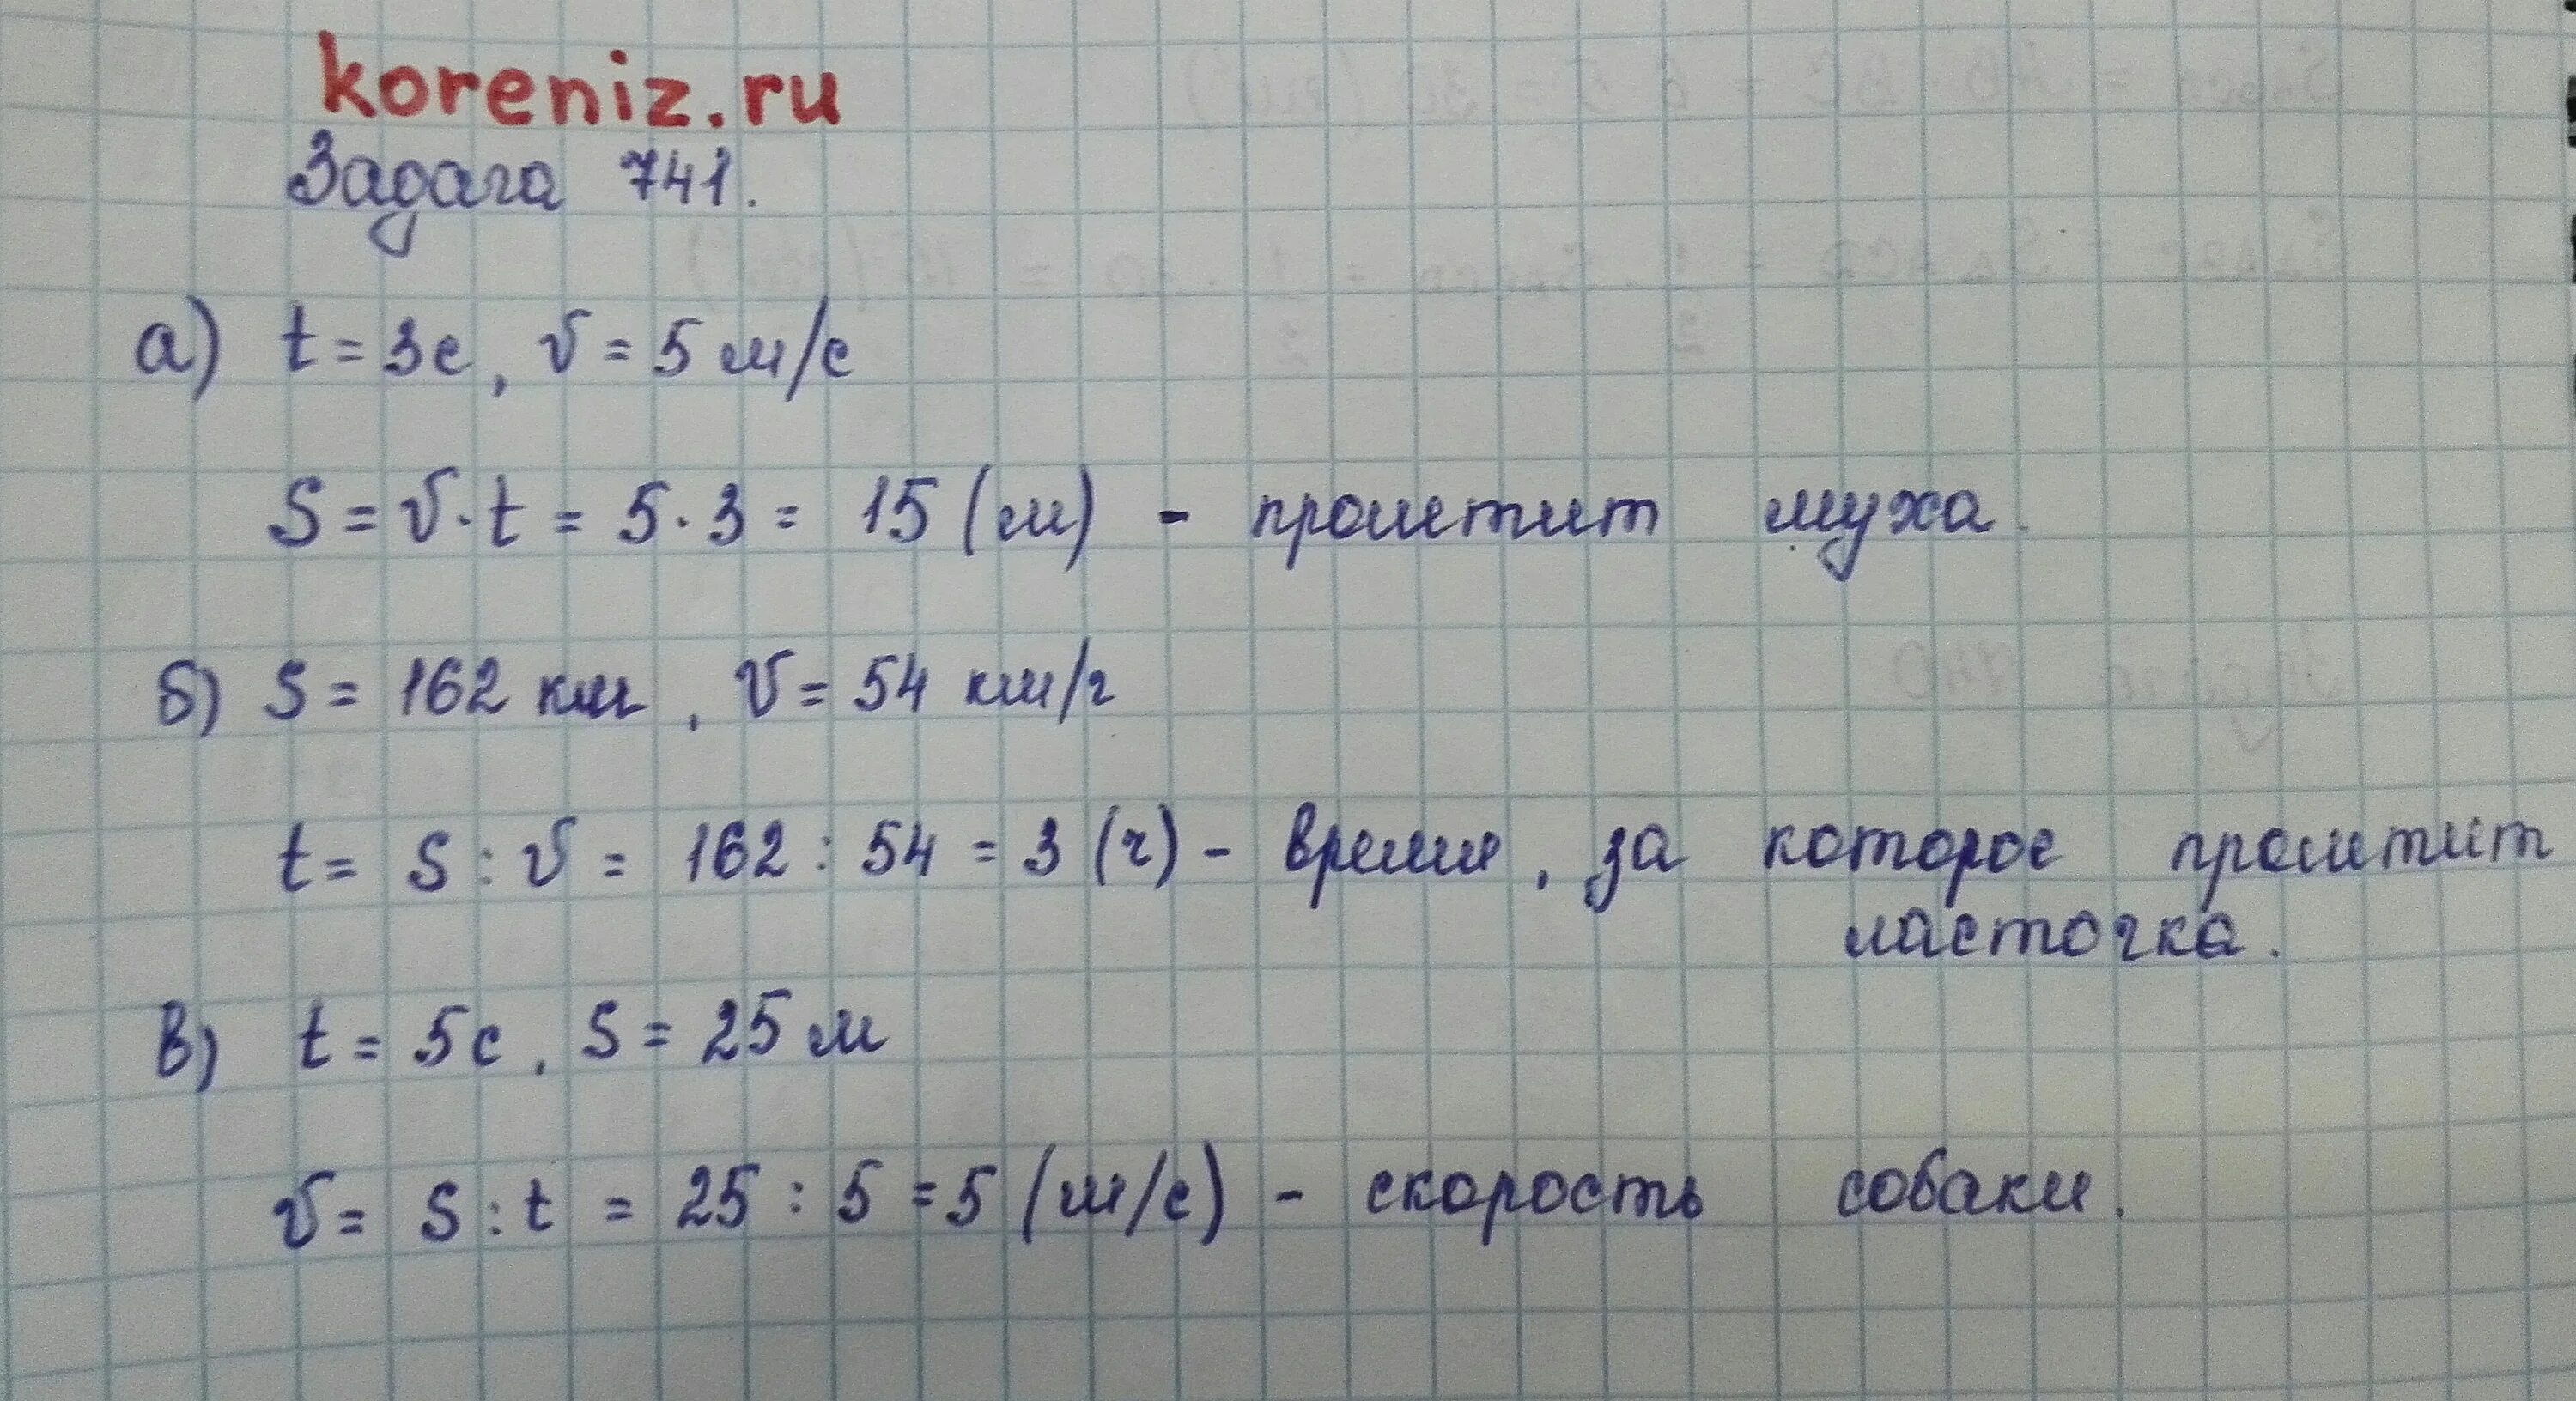 koreniz.ru
Задача 741.
а) t = 3с, v = 5 м/с
S = v · t = 5 · 3 = 15 (м) - пролетит муха.
б) S = 162 км, v = 54 км/ч
t = S : v = 162 : 54 = 3 (ч) - время, за которое пролетит
ласточка.
в) t = 5с, S = 25 м
v = S : t = 25 : 5 = 5 (м/с) - скорость собаки.